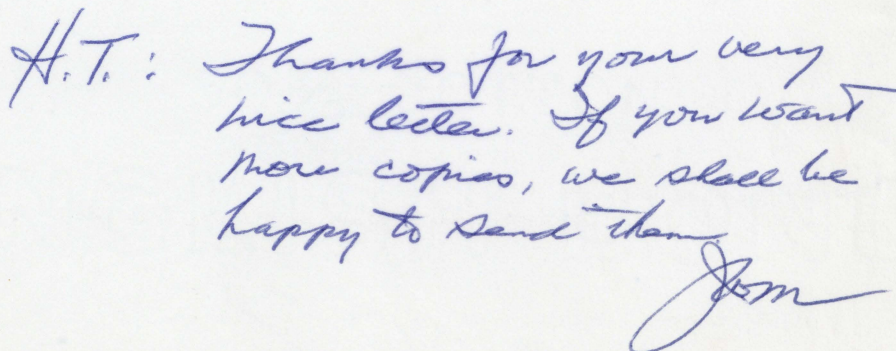 H.T.: Thanks for your very
nice letter. If you want
more copies, we shall be
happy to send them.